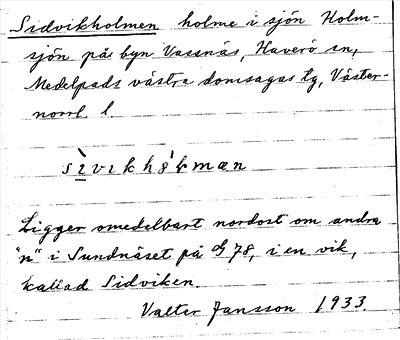 Sidvikholmen holme i sjön Holm-
sjön på byn Vassnäs, Haverö sn,
Medelpads västra domsagas tg, Väster-
norrl. l.
Ligger omedelbart nordost om andra
"n" i Sundnäset på G 78, i en vik,
kallad Sidviken.
Valter Jansson 1933.